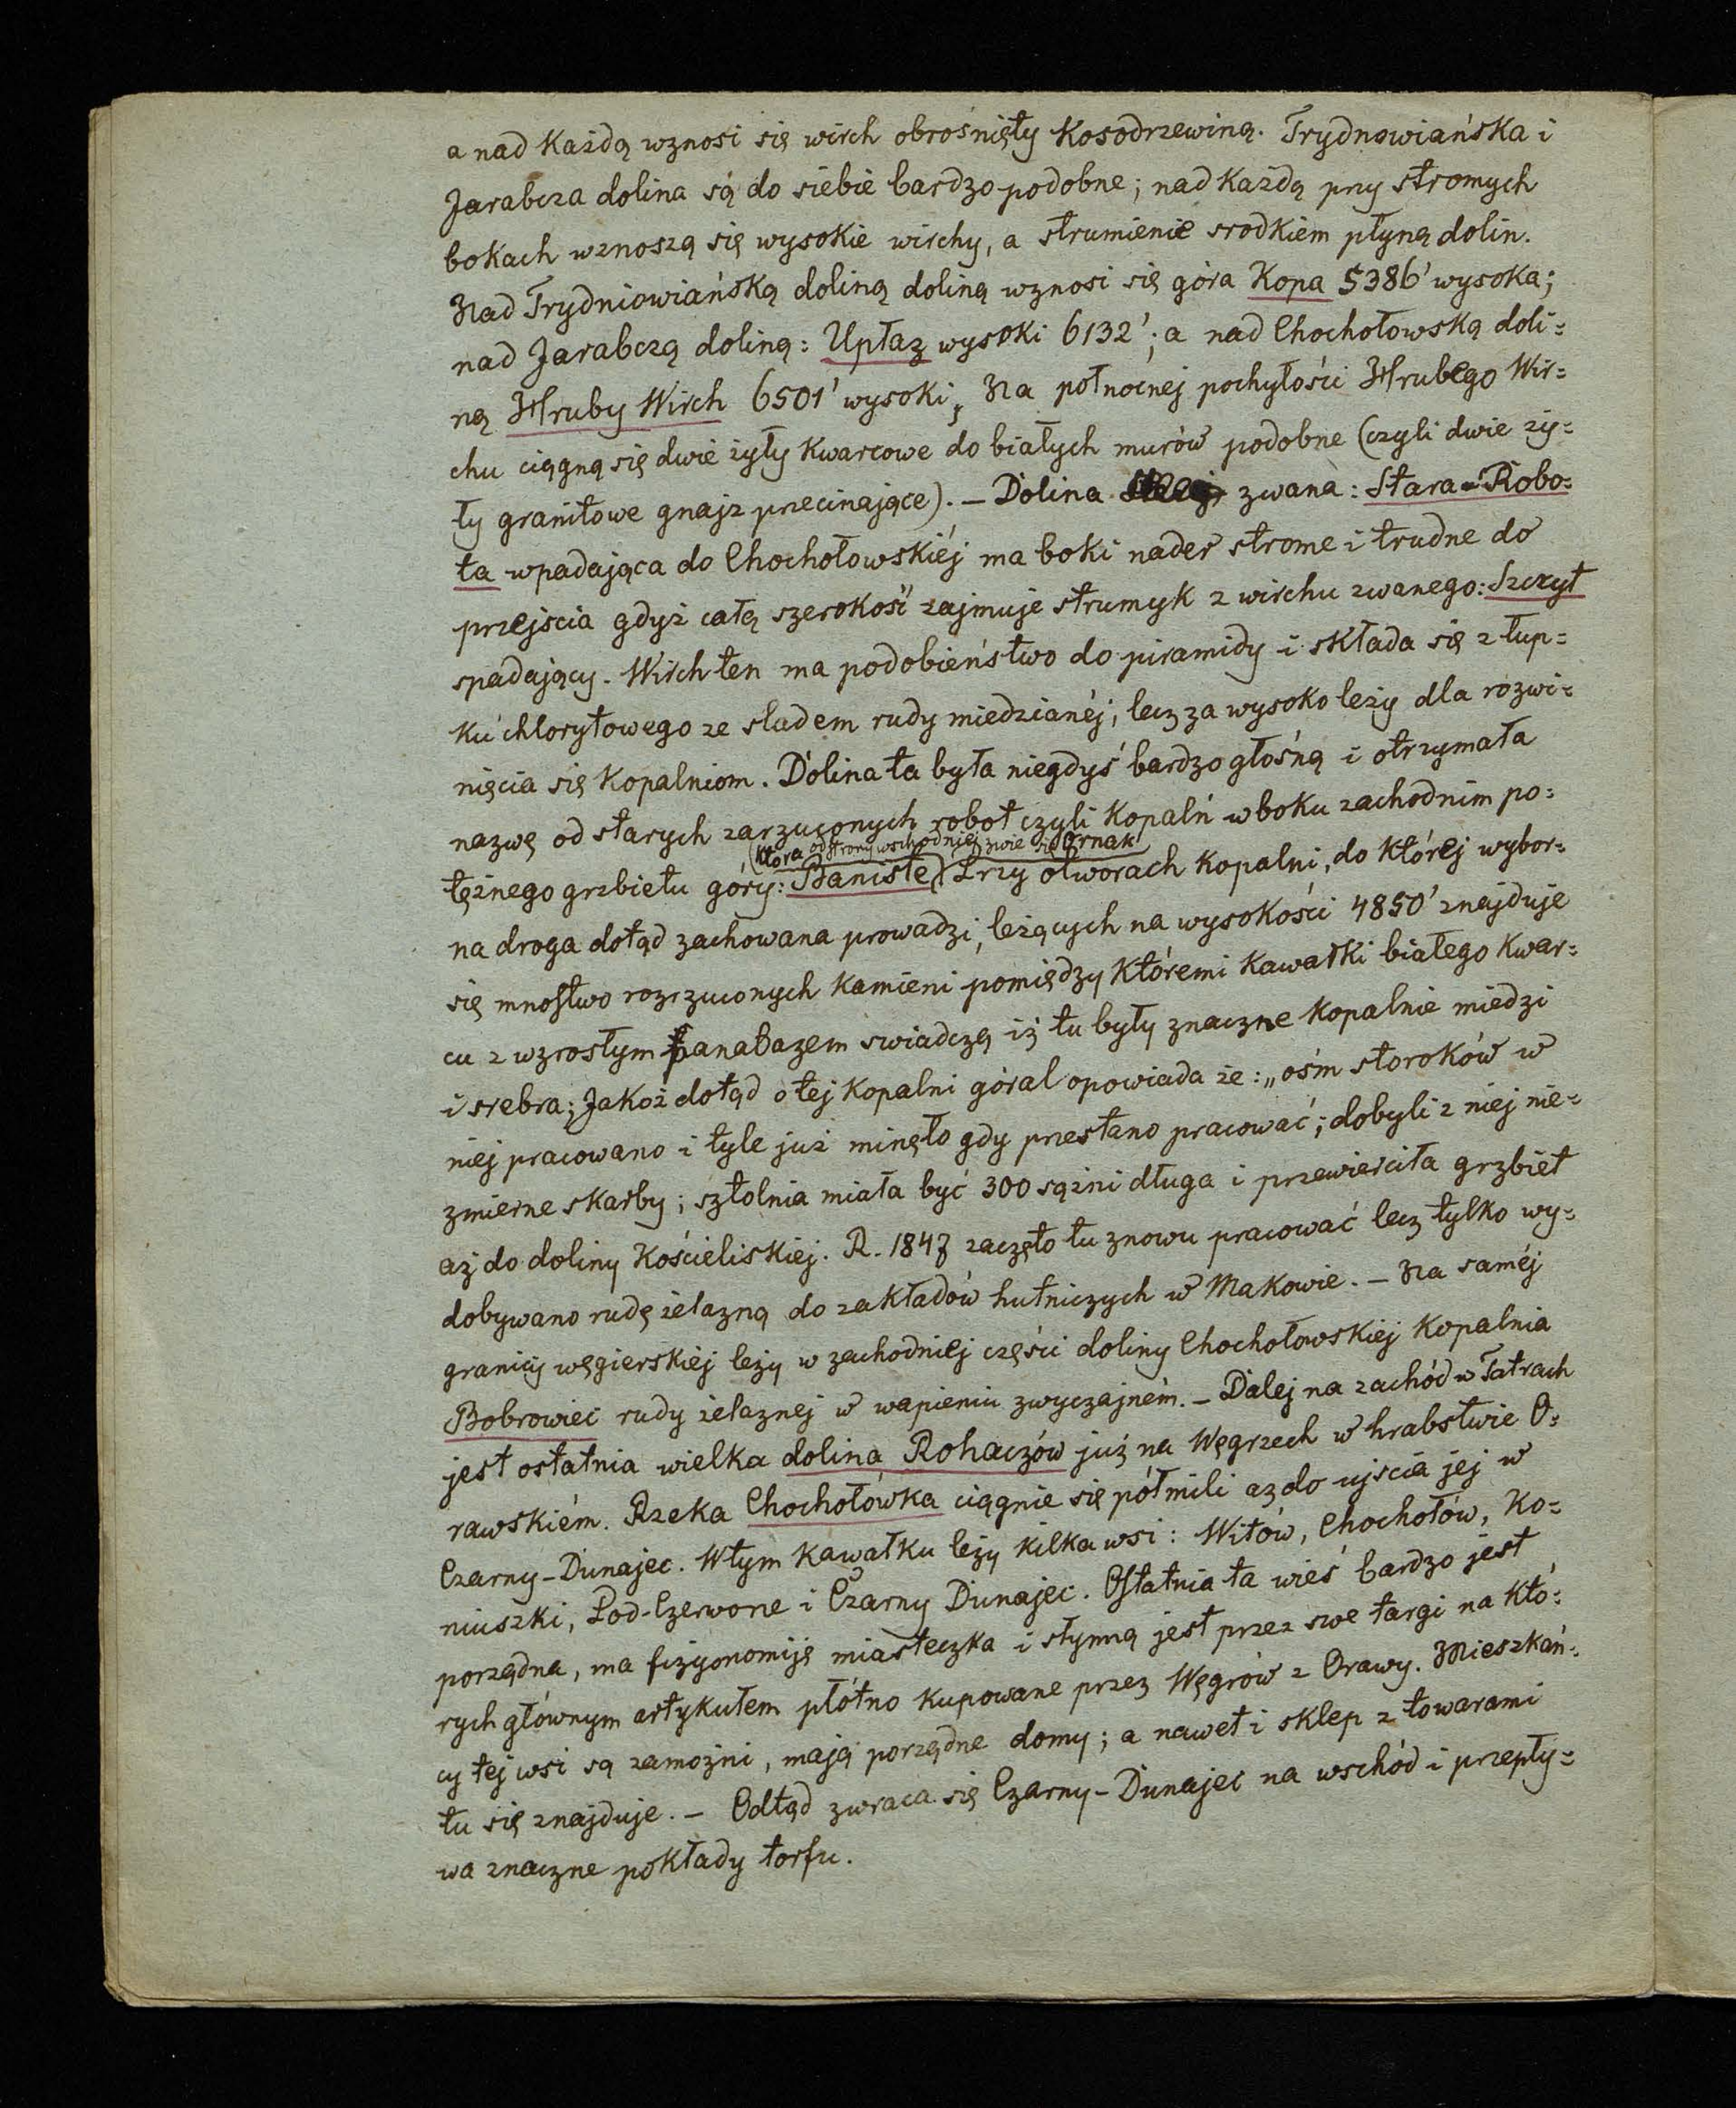 a nad każdą wznosi się wirch obrośnięty kosodrzewiną. Trydnowiańska i
Jarabcza dolina są do siebie bardzo podobne; nad każdą przy stromych
bokach wznoszą się wysokie wirchy, a strumienie srodkiem płyną dolin.
Nad Trydniowiańską doliną doliną wznosi się góra Kopa 5386' wysoka;
nad Jarabczą doliną: Upłaz wysoki 6132'; a nad Chochołowską doli=
ną Hruby Wirch 6501' wysoki; Na połnocnej pochyłości Hrubego Wir=
chu ciągną się dwie żyły kwarcowe do białych murów podobne (czyli dwie ży=
ły granitowe gnajz przecinające). – Dolina zwana: Stara-Robo=
ta wpadająca do Chochołowskiéj ma boki nader strome i trudne do
przejscia gdyż całą szerokość zajmuje strumyk z wirchu zwanego: Szczyt
spadający. Wirch ten ma podobieństwo do piramidy i składa się z łup=
ku chlorytowego ze sladem rudy miedzianéj, lecz za wysoko leży dla rozwi=
nięcia się kopalniom. Dolina ta była niegdyś bardzo głośną i otrzymała
nazwę od starych zarzuconych robot czyli kopalń w boku zachodnim po=
(która od strony wschodniej zwie się Ornak
tężnego grzbietu góry: Baniste) Przy otworach kopalni, do której wybor=
na droga dotąd zachowana prowadzi, leżących na wysokości 4850' znajduje
się mnostwo rozrzuconych kamieni pomiędzy któremi kawałki białego kwar=
cu z wzrosłym panabazem swiadczą iż tu były znaczne kopalnie miedzi
i srebra; Jakoż dotąd o tej kopalni góral opowiada że: „ośm storoków w
niej pracowano i tyle już minęło gdy przestano pracować; dobyli z niej nie=
zmierne skarby; sztolnia miała być 300 sążni długa i przewierciła grzbiet
aż do doliny Kościeliskiej. R. 1847 zaczęto tu znowu pracować lecz tylko wy=
dobywano rudę żelazną do zakładów hutniczych w Makowie. – Na saméj
granicy węgierskiéj leży w zachodniej części doliny Chochołowskiej kopalnia
Bobrowiec rudy żelaznej w wapieniu zwyczajném. – Dalej na zachód w Tatrach
jest ostatnia wielka dolina Rohaczów już na Węgrzech w hrabstwie O=
rawskiém. Rzeka Chochołówka ciągnie się półmili aż do ujscia jej w
Czarny-Dunajec. W tym kawałku leży kilka wsi: Witów, Chochołów, Ko=
niuszki, Pod-Czerwone i Czarny Dunajec. Ostatnia ta wieś bardzo jest
porządna, ma fizyonomiję miasteczka i słynną jest przez swe targi na któ=
rych głównym artykułem płótno kupowane przez Węgrów z Orawy. Mieszkań=
cy tej wsi są zamożni, mają porządne domy; a nawet i sklep z towarami
tu się znajduje. – Odtąd zwraca się Czarny-Dunajec na wschód i przepły=
wa znaczne pokłady torfu.